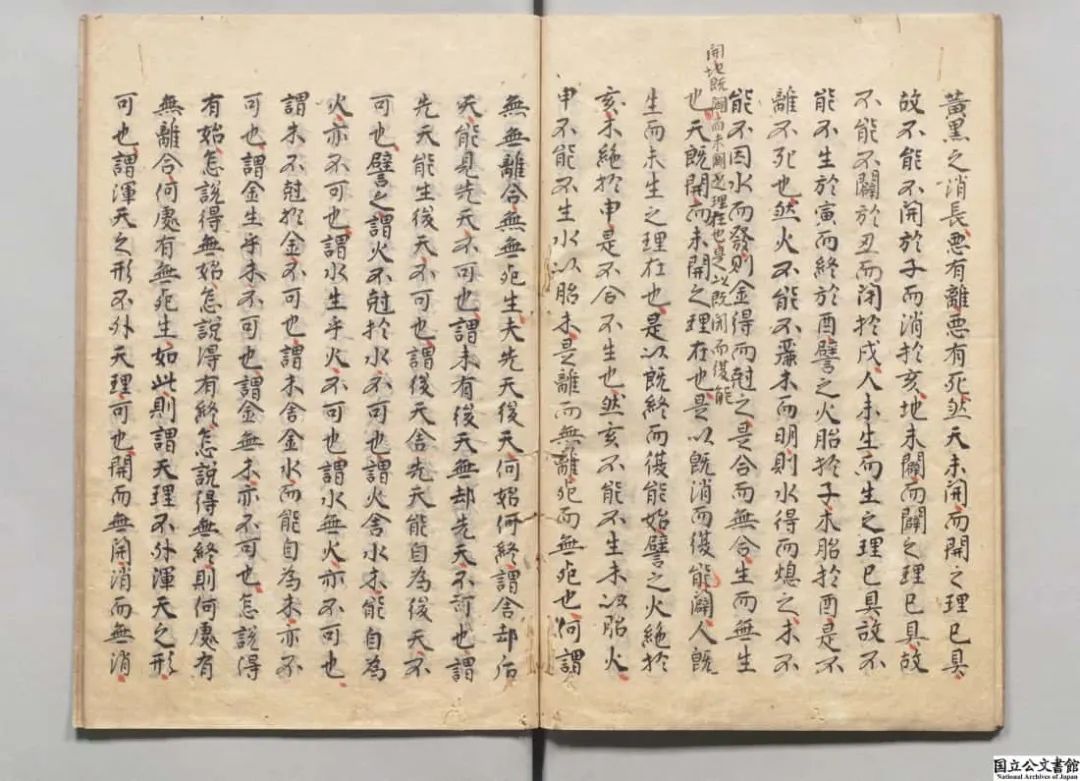 黃黑之消長惡有離惡有死然天未開而開之理已具
故不能不開於子而消於亥地未闢而闢之理已具故
不能不闢於丑而閉於戌人未生而生之理已具故不
能不生於寅而終於酉譬之火胎於子木胎於酉是不
離不死也然火不能不麗木而明則水得而熄之木不
能不因水而發則金得而尅之是合而無合生而無生
也天既開而未開之理在也是以既消而復能闢人既
開地既闢而未闢之理在也是以既閉而復能
生而未生之理在也是以既終而復能始譬之火絕於
亥木絕於申是不合不生也然亥不能不生木以胎火
申不能不生水以胎木是離而無離死而無死也何謂
無無離合無無死生夫先天後天何始何終謂舍却后
天能見先天不可也謂未有後天無却先天不可也謂
先天能生後天不可也謂後天舍先天能自為後天不
可也譬之謂火不尅於水不可也謂火舍水木能自為
火亦不可也謂水生乎火不可也謂水無火亦不可也
謂木不尅於金不可也謂木舍金水而能自為木亦不
可也謂金生乎木不可也謂金無木亦不可也怎說得
有始怎說得無始怎說得有終怎說得無終則何處有
無離合何處有無死生如此則謂天理不外渾天之形
可也謂渾天之形不外天理可也開而無開消而無消
国立公文書館
National Archives of Japan